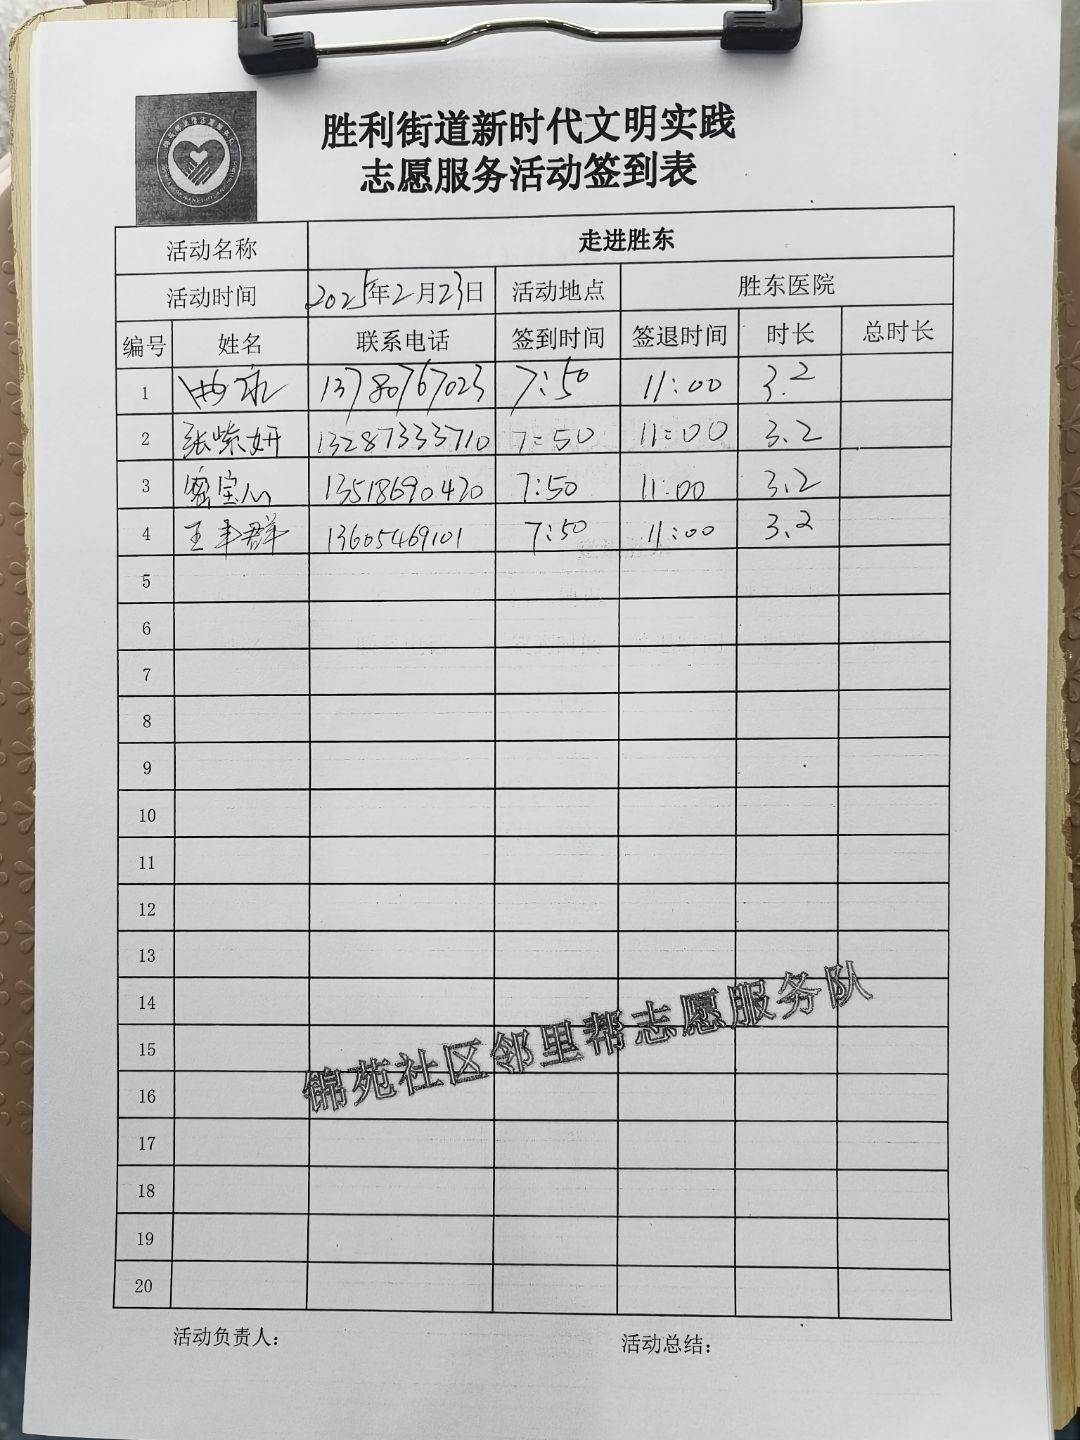 胜利街道新时代文明实践
志愿服务活动签到表
活动名称 走进胜东
活动时间 2025年2月23日 活动地点 胜东医院
编号 姓名 联系电话 签到时间 签退时间 时长 总时长
1 13780767023 7:50 11:00 3.2
2 张紫妍 13287333710 7:50 11:00 3.2
3 密宝 13518690420 7:50 11:00 3.2
4 王丰群 13605469101 7:50 11:00 3.2
5
6
7
8
9
10
11
12
13
14
15
16
17
18
19
20
锦苑社区邻里帮志愿服务队
活动负责人: 活动总结: